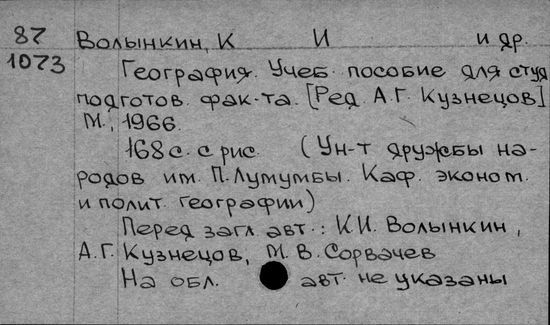 87 Волынкин, К И и др.
1073 География. Учеб. пособие для студ
подготов. фак-та. [Ред. А.Г. Кузнецов]
М., 1966.
168 с. с рис. (Ун-т дружбы на-
родов им. П. Лумумбы. Каф. эконом.
и полит. географии)
Перед загл авт.: К.И. Волынкин,
А.Г. Кузнецов, М.В. Сорвачев
На обл. авт. не указаны